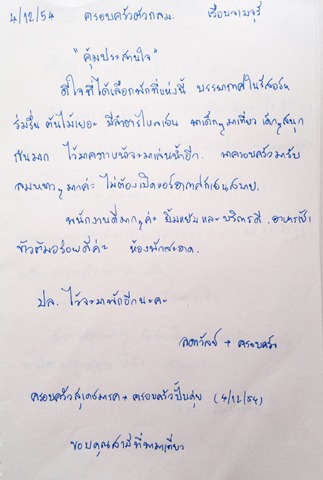 4/12/54 ครอบครัวตัวกลม. เรือนจามจุรี
"คุ้มประสานใจ"
ดีใจที่ได้เลือกพักที่แห่งนี้ บรรยากาศในรีสอร์ท
ร่มรื่น ต้นไม้เยอะ มีลำธารไหลเย็น พาเด็กๆมาเที่ยว เด็กๆสนุก
กันมาก ไว้มาคราวหน้าจะมาเล่นน้ำอีก. พาครอบครัวมารับ
ลมหนาวๆมาค่ะ ไม่ต้องเปิดแอร์อากาศก็เย็นสบาย.
พนักงานดีมากๆค่ะ ยิ้มแย้ม และบริการดี. อาหารเช้า
ข้าวต้มอร่อยดีค่ะ ห้องพักสะอาด.
ปล. ไว้จะมาพักอีกนะคะ
ลดาวัลย์ + ครอบครัว
ครอบครัว + ครอบครัวปั้นตุ่ย (4/12/54)
ขอบคุณสามีที่พามาเที่ยว